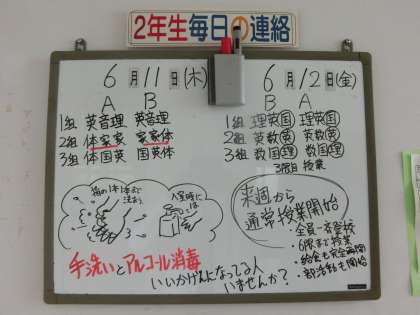 2年生毎日の連絡
6月11日(木)
A B
1組 英音理 英音理
2組 体家家 家家体
3組 体国英 国英体
6月12日(金)
B A
1組 理英国 理英国
2組 英数英 英数英
3組 数国理 数国理
3時間授業
指の1本1本まで
洗おう
入室時には
手洗いとアルコール消毒
いいかげんになってる人
いませんか?
来週から
通常授業開始
・全員一斉登校
・6限まで授業
・給食も完全再開
・部活動も開始